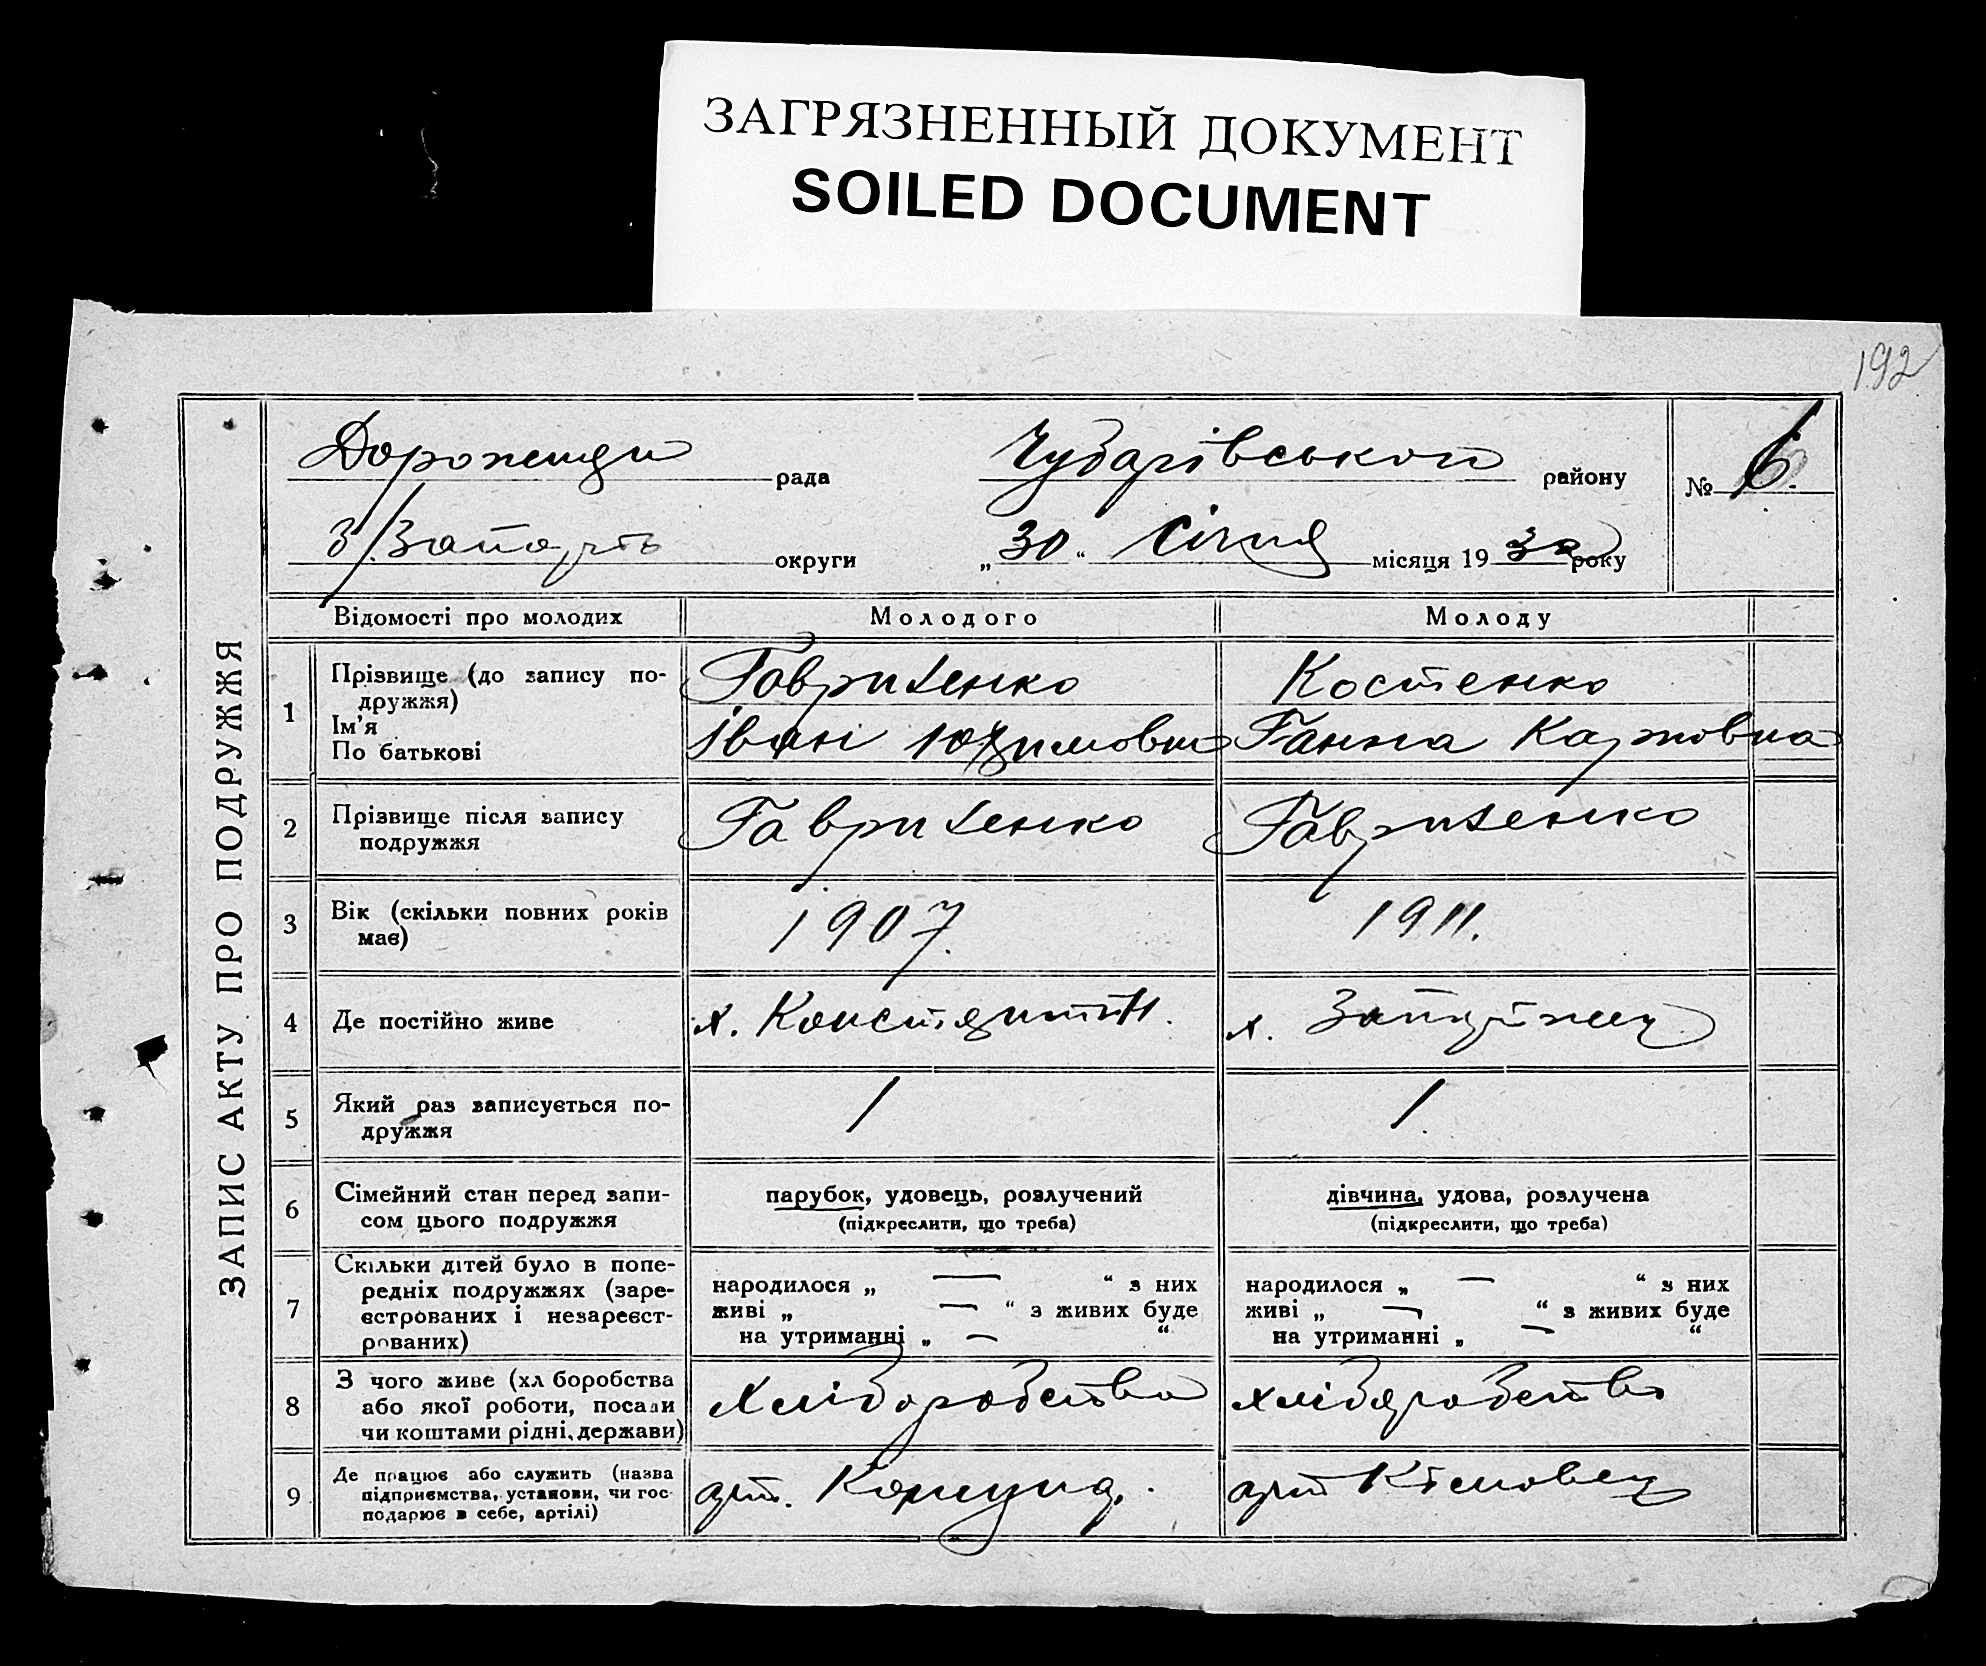 ЗАГРЯЗНЕННЫЙ ДОКУМЕНТ
SOILED DOCUMENT
192
ЗАПИС АКТУ ПРО ПОДРУЖЖЯ
рада
Чубарівської району
№ 6.
округи
„30“ Січня місяця 1930 року
Відомості про молодих
Молодого
Молоду
1
Прізвище (до запису по-
дружжя)
Ім'я
По батькові
Гавриленко
Іван
Костенко
Ганна Карповна
2
Прізвище після запису
подружжя
Гавриленко
Гавриленко
3
Вік (скільки повних років
має)
1907.
1911.
4
Де постійно живе
х.
х.
5
Який раз записується по-
дружжя
1
1.
6
Сімейний стан перед запи-
сом цього подружжя
парубок, удовець, розлучений
(підкреслити, що треба)
дівчина, удова, розлучена
(підкреслити, що треба)
7
Скільки дітей було в попе-
редніх подружжях (заре-
єстрованих і незареєст-
рованих)
народилося „ — “ з них
живі „ — “ з живих буде
на утриманні „ — “
народилося „ — “ з них
живі „ — “ з живих буде
на утриманні „ — “
8
З чого живе (хл боробства
або якої роботи, посади
чи коштами рідні, держави)
Хліборобства
хліборобство
9
Де працює або служить (назва
підприємства, установи, чи гос-
подарює в себе, артілі)
арт.
арт